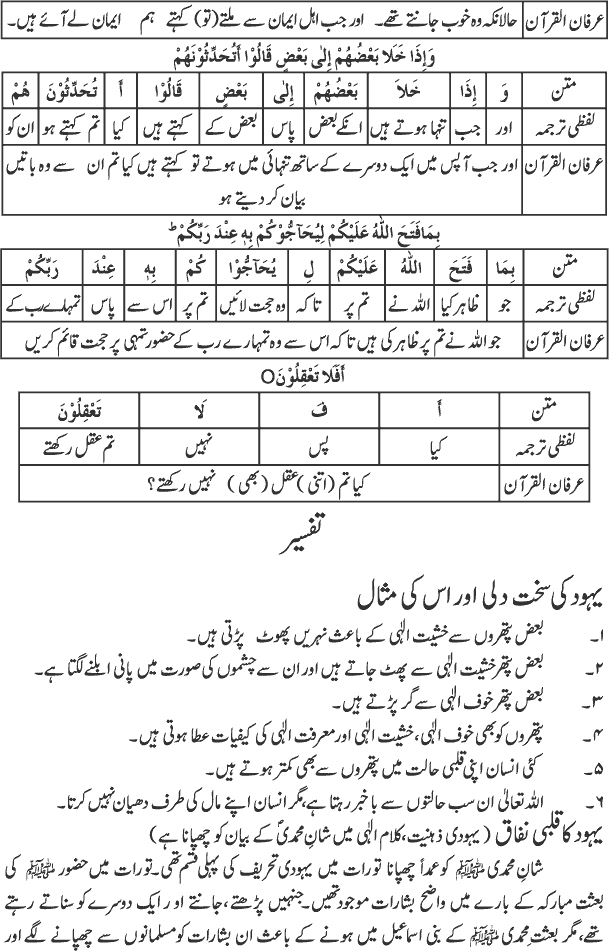 عرفان القرآن حالانکہ وہ خوب جانتے تھے۔ اور جب اہل ایمان سے ملتے (تو) کہتے ہم ایمان لے آئے ہیں۔
وَاِذَا خَلَا بَعْضُهُمْ اِلٰى بَعْضٍ قَالُوْٓا اَتُحَدِّثُوْنَهُمْ
متن وَ اِذَا خَلاَ بَعْضُهُمْ اِلٰى بَعْضٍ قَالُوْا أَ تُحَدِّثُوْنَ هُمْ
لفظی ترجمہ اور جب تنہا ہوتے ہیں انکے بعض پاس بعض کے کہتے ہیں کیا تم کہتے ہو ان کو
عرفان القرآن اور جب آپس میں ایک دوسرے کے ساتھ تنہائی میں ہوتے تو کہتے ہیں کیا تم ان سے وہ باتیں
بیان کر دیتے ہو
بِمَا فَتَحَ اللهُ عَلَيْكُمْ لِيُحَآجُّوْكُمْ بِهٖ عِنْدَ رَبِّكُمْ ط
متن بِمَا فَتَحَ اللهُ عَلَيْكُمْ لِ يُحَآجُّوْا كُمْ بِهٖ عِنْدَ رَبِّكُمْ
لفظی ترجمہ جو ظاہر کیا اللہ نے تم پر تاکہ وہ حجت لائیں تم پر اس سے پاس تمہارے رب کے
عرفان القرآن جو اللہ نے تم پر ظاہر کی ہیں تاکہ اس سے وہ تمہارے رب کے حضور تمہی پر حجت قائم کریں
اَفَلَا تَعْقِلُوْنَ O
متن أَ فَ لَا تَعْقِلُوْنَ
لفظی ترجمہ کیا پس نہیں تم عقل رکھتے
عرفان القرآن کیا تم (اتنی) عقل (بھی) نہیں رکھتے؟
تفسیر
یہود کی سخت دلی اور اس کی مثال
۱۔ بعض پتھروں سے خشیت الٰہی کے باعث نہریں پھوٹ پڑتی ہیں۔
۲۔ بعض پتھر خشیت الٰہی سے پھٹ جاتے ہیں اور ان سے چشموں کی صورت میں پانی ابلنے لگتا ہے۔
۳۔ بعض پتھر خوف الٰہی سے گر پڑتے ہیں۔
۴۔ پتھروں کو بھی خوف الٰہی، خشیت الٰہی اور معرفت الٰہی کی کیفیات عطا ہوتی ہیں۔
۵۔ کئی انسان اپنی قلبی حالت میں پتھروں سے بھی کمتر ہوتے ہیں۔
۶۔ اللہ تعالیٰ ان سب حالتوں سے باخبر رہتا ہے، مگر انسان اپنے مال کی طرف دھیان نہیں کرتا۔
یہود کا قلبی نفاق (یہودی ذہنیت، کلام الٰہی میں شانِ محمدیؐ کے بیان کو چھپانا ہے)
شانِ محمدی ﷺ کو عمداً چھپانا تورات میں یہودی تحریف کی پہلی قسم تھی۔ تورات میں حضور ﷺ کی
بعثت مبارکہ کے بارے میں واضح بشارات موجود تھیں۔ جنہیں پڑھتے، جانتے او ر ایک دوسرے کو سناتے رہتے
تھے، مگر بعثتِ محمدی ﷺ کے بنی اسماعیل میں ہونے کے باعث ان بشارات کو مسلمانوں سے چھپانے لگے اور